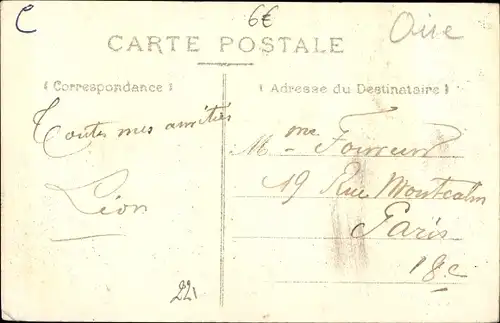 C
6€
Oise
CARTE POSTALE
(Correspondance)
(Adresse du Destinataire)
Toutes mes amitiés
Léon
Mme
19 Rue Montcalm
Paris
18e
221